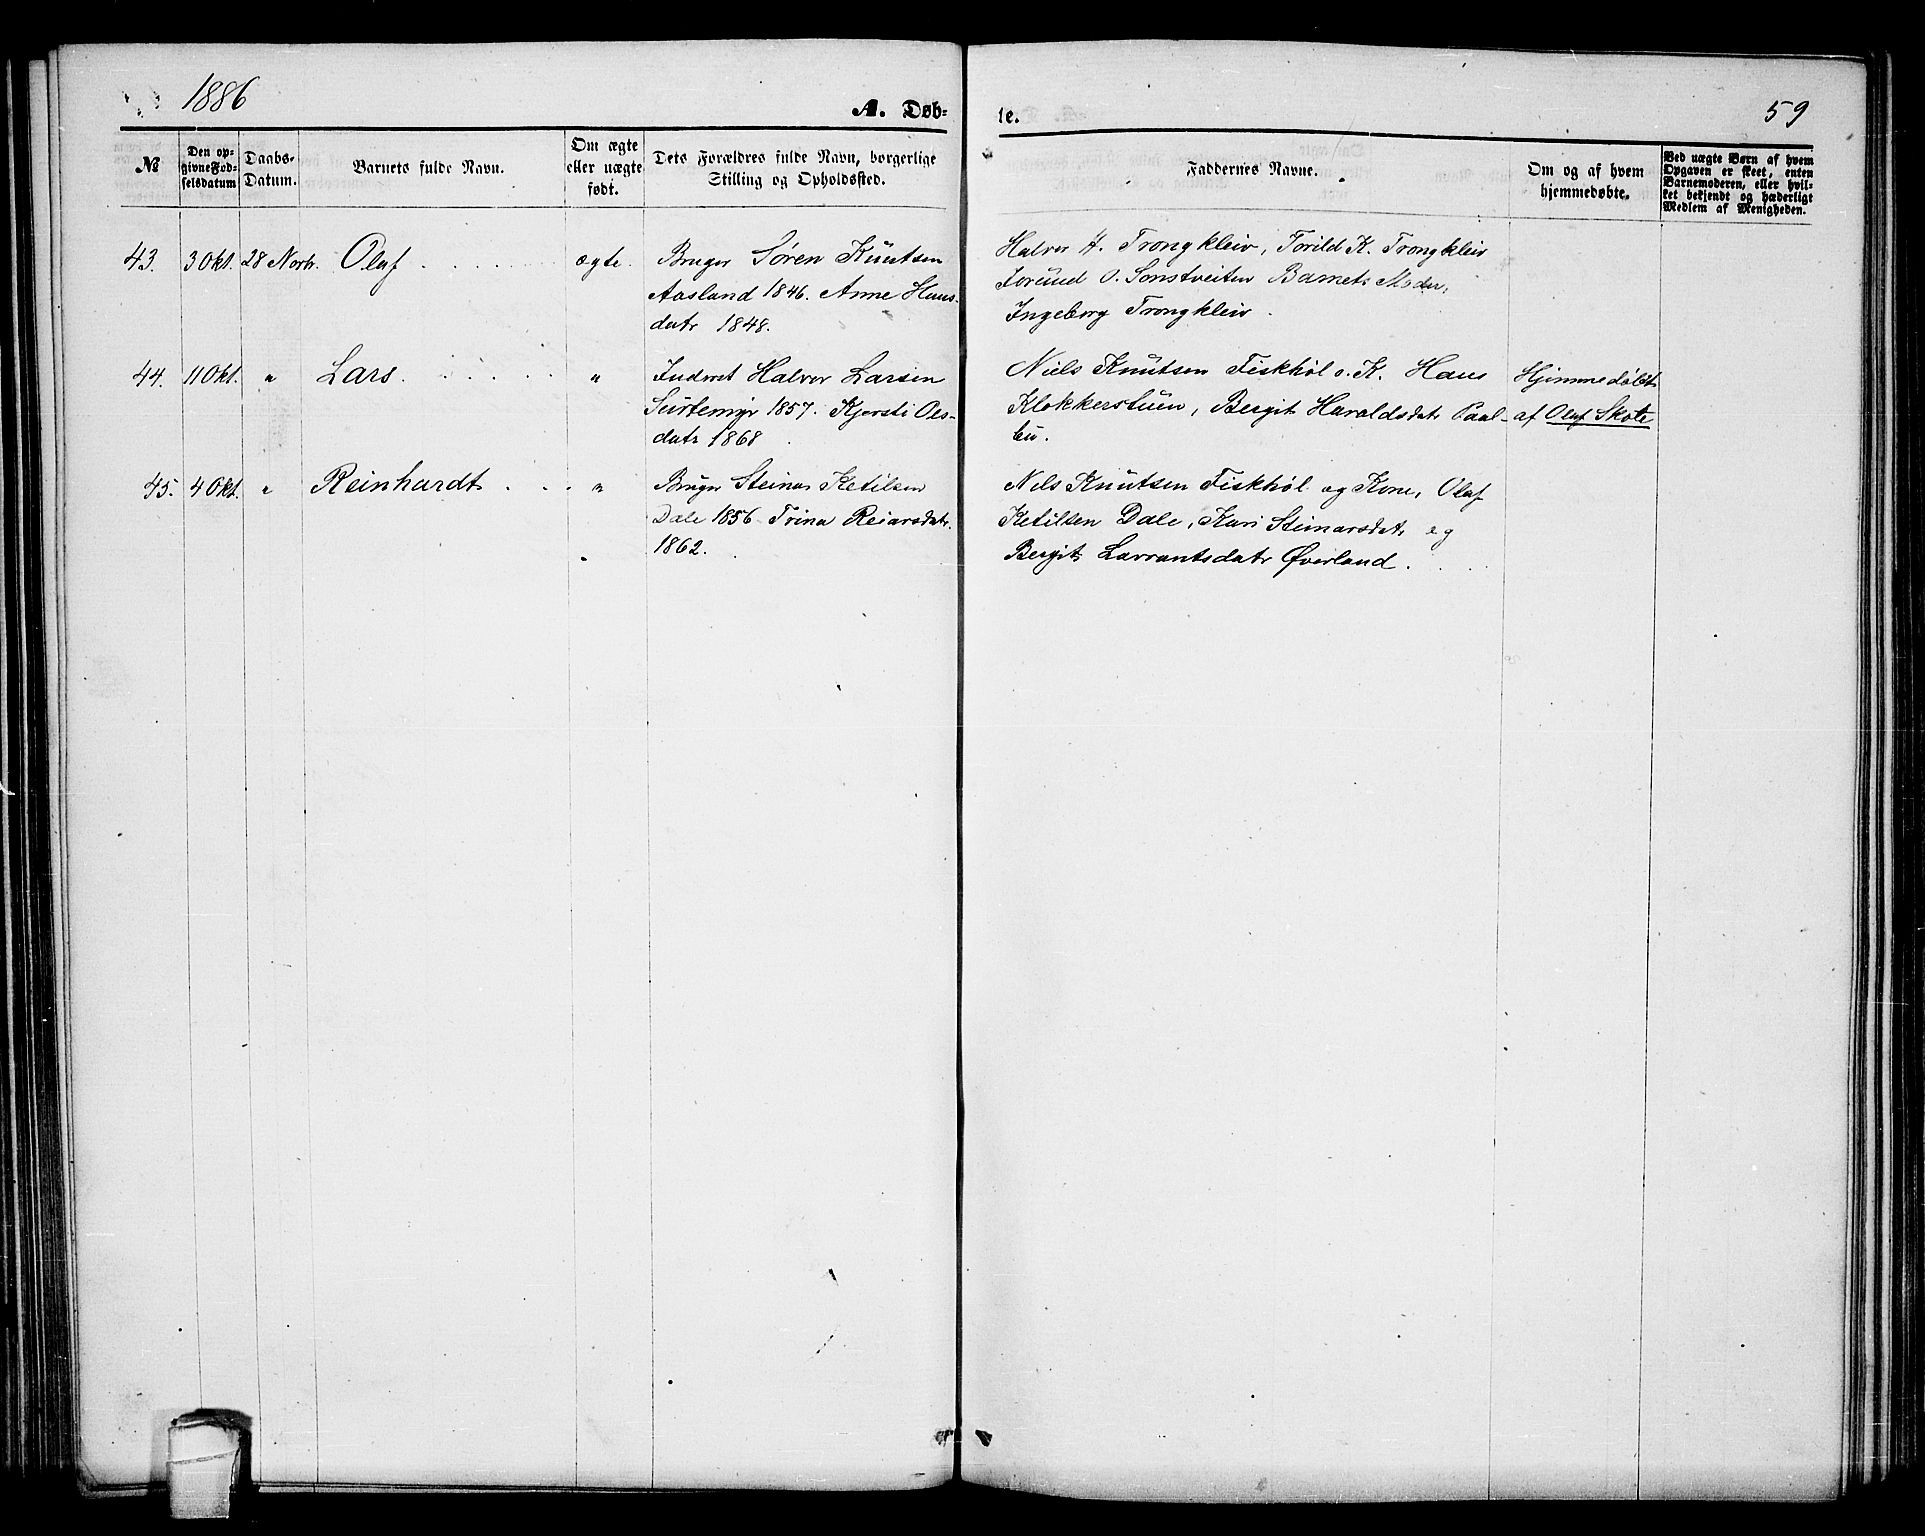 1886
A. Døb-
te.
59
№
Den op-
givne Fød-
selsdatum
Daabs-
Datum.
Barnets fulde Navn.
Om ægte
eller uægte
født.
Dets Forældres fulde Navn, borgerlige
Stilling og Opholdssted.
Faddernes Navne.
Om og af hvem
hjemmedøbte.
Ved uægte Børn af hvem
Opgaven er skeet, enten
Barnemoderen, eller hvil-
ket bekjendt og hæderligt
Medlem af Menigheden.
43. 3 Okt. 28 Novbr. Olaf ægte. Bruger Søren Knutsen
Aasland 1846. Anne Hans-
datr 1848.
Halvor A. Trongkleiv, Torild K. Trongkleiv
Jorund O. Sonstveiten Barnets Moder,
Ingeborg Trongkleiv.
44. 11 Okt. " Lars. " Inderst Halvor Larsen
Surtemyr 1857. Kjersti Ols-
datr 1868
Niels Knutsen Fiskhøl o. K. Hans
Klokkerstuen, Bergit Haraldsdatr Paal-
bu.
Hjemmedøbt
af Olaf Skole
45. 4 Okt. " Reinhardt " Bruger Steinar Ketilsen
Dale 1856 Trina Reiarsdatr.
1862.
Nils Knutsen Fiskhøl og Kone, Olaf
Ketilsen Dale, Kari Steinarsdatr og
Bergit Lavrantsdatr Øverland.